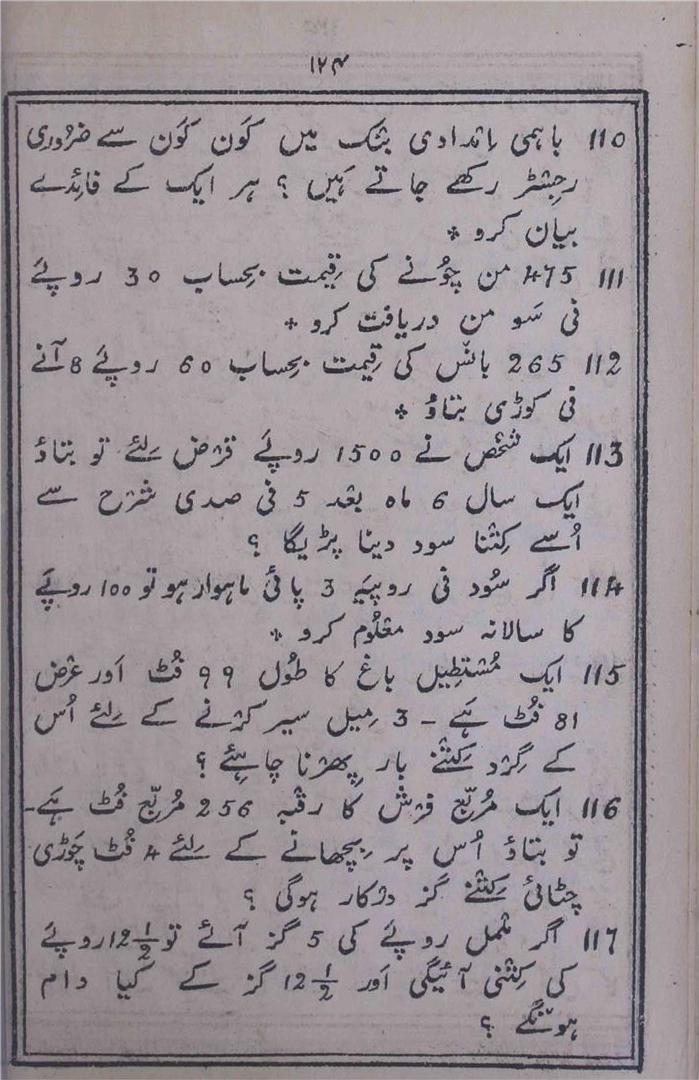 ۱۲۴
110 باہمی اِمدادی بنک میں کَون کَون سے ضرُوری
رجِسٹر رکھے جاتے ہَیں ؟ ہر ایک کے فائِدے
بیان کرو *
111 475 من چُونے کی قِیمت بحِساب 30 روپئے
فی سَو من دریافت کرو *
112 265 بانس کی قِیمت بحِساب 60 روپئے 8 آنے
فی کوڑی بتاؤ *
113 ایک شخص نے 1500 روپئے قرض لِئے تو بتاؤ
ایک سال 6 ماہ بعد 5 فی صدی شرح سے
اُسے کِتنا سود دینا پڑیگا ؟
114 اگر سُود فی روپیہ 3 پائی ماہوار ہو تو 100 روپئے
کا سالانہ سود معلُوم کرو *
115 ایک مُستطِیل باغ کا طُول 99 فُٹ اَور عرض
81 فُٹ ہَے - 3 مِیل سیر کرنے کے لِئے اُس
کے گِرد کِتنے بار پِھرنا چاہِئے ؟
116 ایک مُربّع فرش کا رقبہ 256 مُربّع فُٹ ہَے-
تو بتاؤ اُس پر بِچھانے کے لِئے 4 فُٹ چَوڑی
چٹائی کِتنے گز درکار ہوگی ؟
117 اگر ململ روپئے کی 5 گز آئے تو 12½ روپئے
کی کِتنی آئیگی اَور 12½ گز کے کیا دام
ہونگے ؟